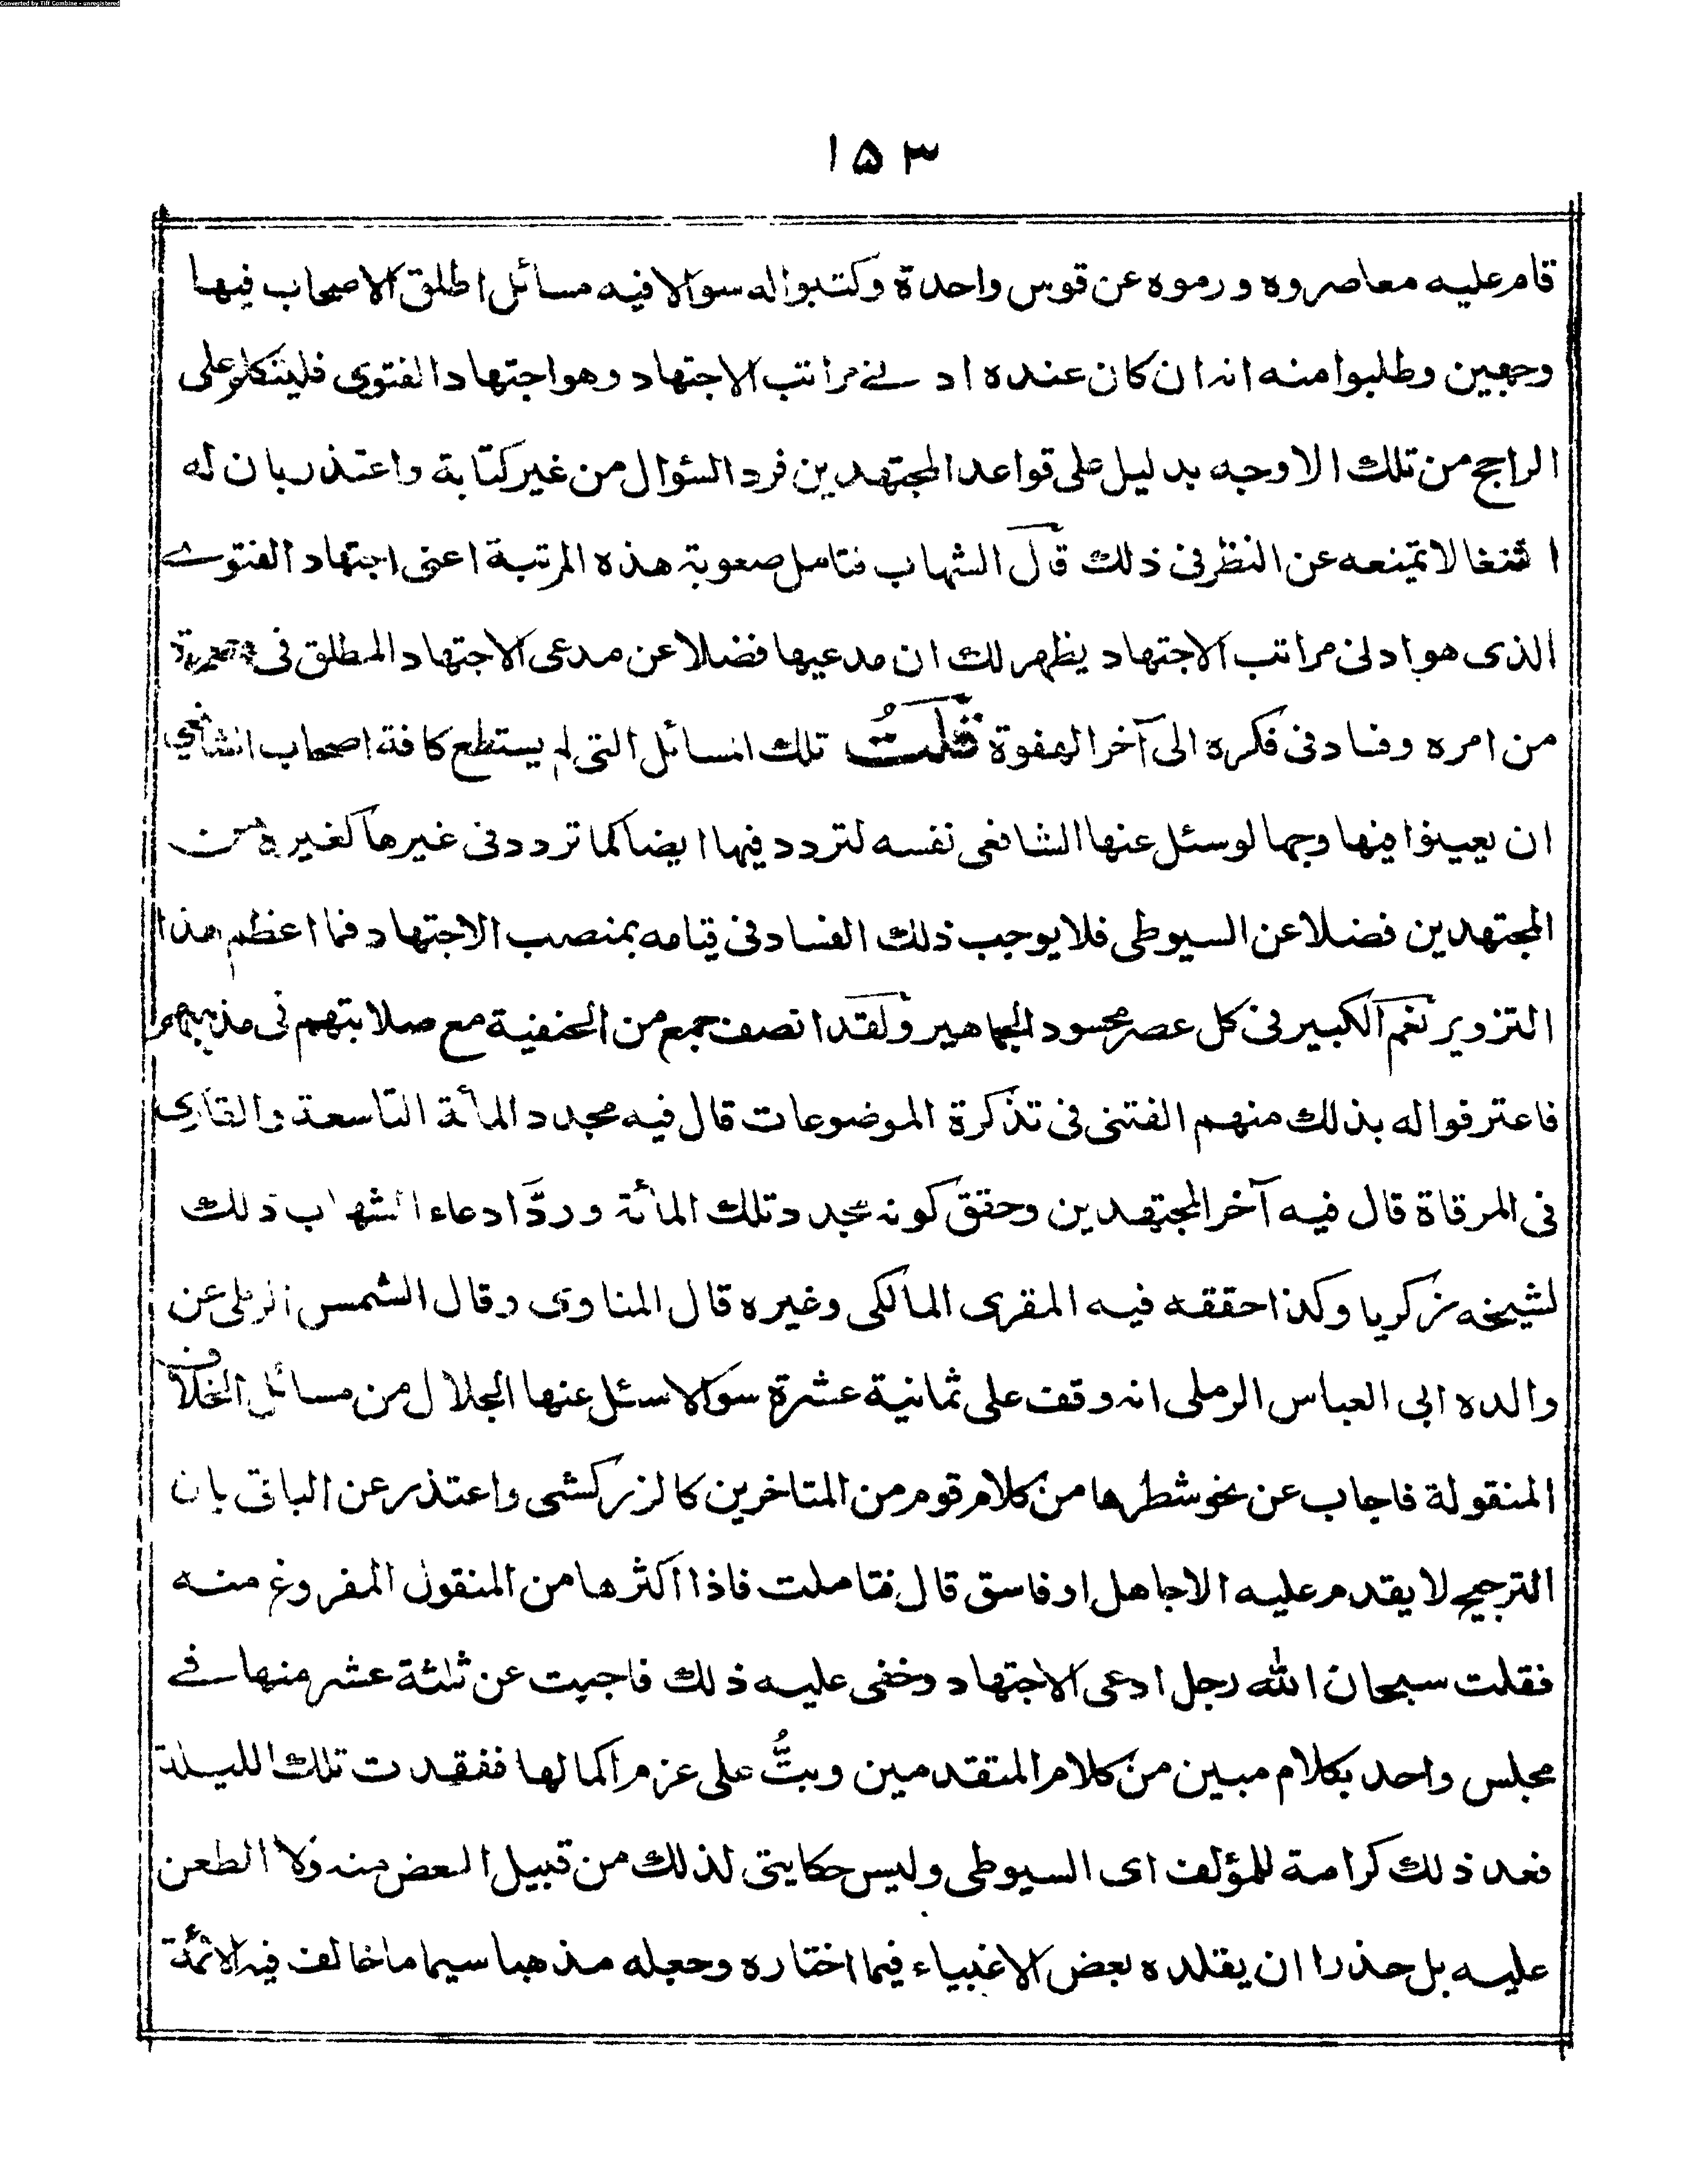 Converted by Tiff Combine - unregistered
١٥٣
قام عليه معاصروه ورموه عن قوس واحدة وكتبوا له سوالا فيه مسائل اطلق الاصحاب فيها
وجهين وطلبوا منه انه ان كان عنده ادنے مراتب الاجتهاد وهو اجتهاد الفتوى فليتكلم على
الراجح من تلك الاوجه بدليل على قواعد المجتهدين فرد السؤال من غير كتابة واعتذر بان له
اشغالا تمنعه عن النظر فى ذلك قال الشهاب فتامل صعوبة هذه المرتبة اعنى اجتهاد الفتوے
الذى هو ادنى مراتب الاجتهاد يظهر لك ان مدعيها فضلا عن مدعى الاجتهاد المطلق فى
من امره وفساد فى فكره الى آخر الهفوة قلتُ تلك المسائل التى لم يستطع كافة اصحاب الشافعي
ان يعينوا فيها وجها لو سئل عنها الشافعى نفسه لتردد فيها ايضا كما تردد فى غيرها كغيره من
المجتهدين فضلا عن السيوطى فلا يوجب ذلك الفساد فى قيامه بمنصب الاجتهاد فما اعظم هذا
التزوير نعم الكبير فى كل عصر محسود الجماهير ولقد انصف جمع من الحنفية مع صلابتهم فى مذهبهم
فاعترفوا له بذلك منهم الفتنى فى تذكرة الموضوعات قال فيه مجدد المأئة التاسعة والقاري
فى المرقاة قال فيه آخر المجتهدين وحقق كونه مجدد تلك المأئة وردَّ ادعاء الشهاب ذلك
لشيخه زكريا وكذا حققه فيه المقرى المالكى وغيره قال المناوى وقال الشمس الرملى عن
والده ابى العباس الرملى انه وقف على ثمانية عشرة سوالا سئل عنها الجلال من مسائل الخلاف
المنقولة فاجاب عن نحو شطرها من كلام قوم من المتاخرين كالزركشى واعتذر عن الباقى بان
الترجيح لا يقدم عليه الا جاهل او فاسق قال فتاملت فاذا اكثرها من المنقول المفروغ منه
فقلت سبحان الله رجل ادعى الاجتهاد وخفى عليه ذلك فاجبت عن ثلثة عشر منها فے
مجلس واحد بكلام مبين من كلام المتقدمين وبتُّ على عزم اكمالها ففقدت تلك الليلة
فعد ذلك كرامة للمؤلف اى السيوطى وليس حكايتى لذلك من قبيل الغض منه ولا الطعن
عليه بل حذرا ان يقلده بعض الاغبياء فيما اختاره وجعله مذهبا سيما ما خالف فيه الائمة